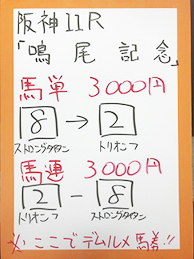 阪神11R
「鳴尾記念」
馬単 3000円
8 → 2
ストロングタイタン トリオンフ
馬連 3000円
2 - 8
トリオンフ ストロングタイタン
※ここでデムルメ馬券!!